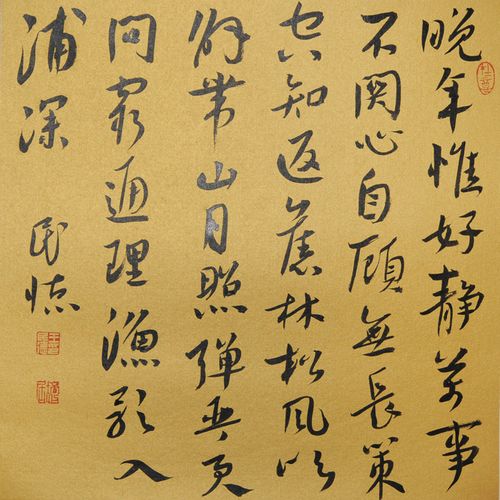 晚年惟好静万事
不関心自顾無長策
空知返舊林松风吹
解带山月照弹琴君
问穷通理漁歌入
浦深
民